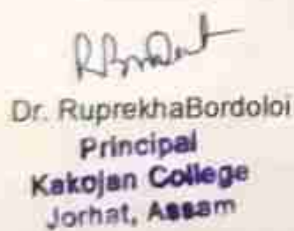 Dr. RuprekhaBordoloi
Principal
Kakojan College
Jorhat, Assam